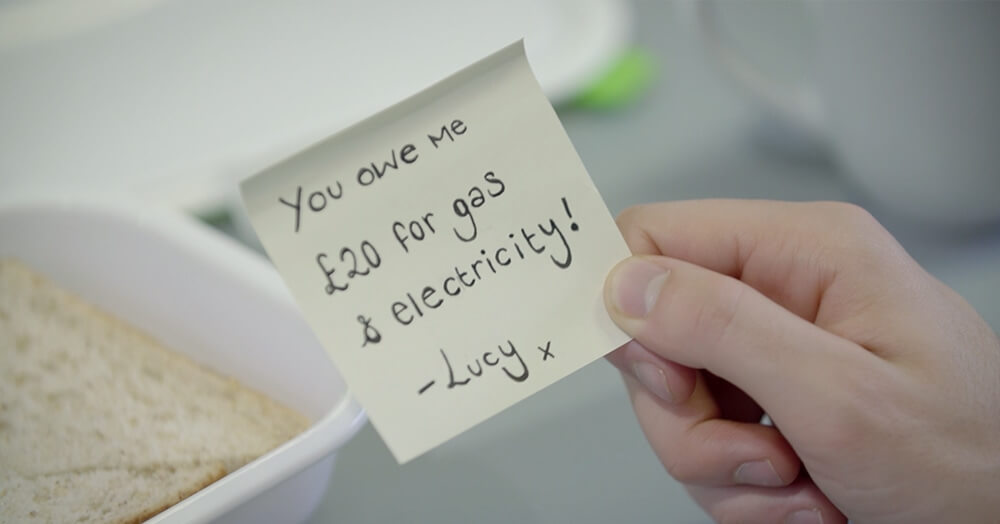 You owe me
£20 for gas
& electricity!
-Lucy x